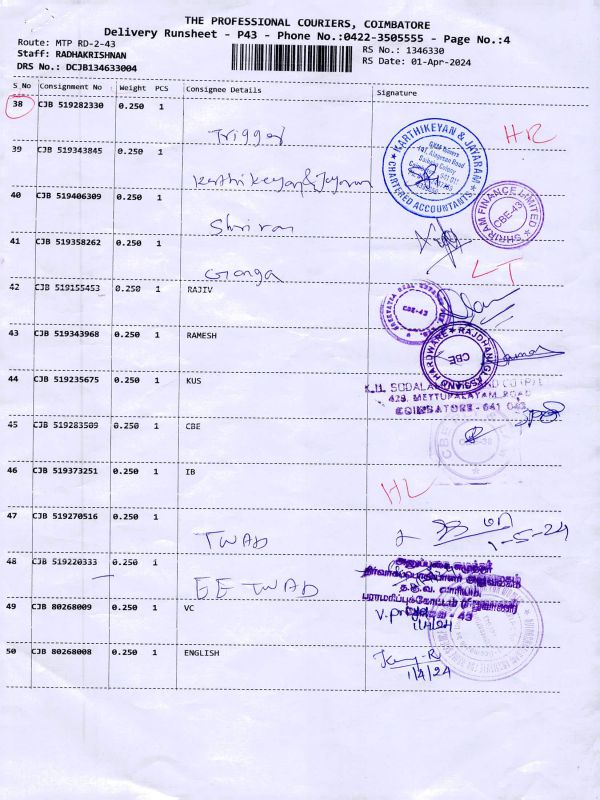 THE PROFESSIONAL COURIERS, COIMBATORE
Delivery Runsheet - P43 - Phone No.:0422-3505555 - Page No.:4
Route: MTP RD-2-43
RS No.: 1346330
Staff: RADHAKRISHNAN
RS Date: 01-Apr-2024
DRS No.: DCJB134633004
S_No Consignment No Weight PCS Consignee Details Signature
38 CJB 519282330 0.250 1
Trigger HR
39 CJB 519343845 0.250 1
Karthikeyan & Jayaram
KARTHIKEYAN & JAYARAM
CHARTERED ACCOUNTANTS
40 CJB 519406309 0.250 1
Shriram
SHRIRAM FINANCE LIMITED
CBE-43
41 CJB 519358262 0.250 1
Ganga LT
42 CJB 519155453 0.250 1 RAJIV
CBE-43
43 CJB 519343968 0.250 1 RAMESH
RAJDHANI GLASS AND HARDWARE
CBE
44 CJB 519235675 0.250 1 KUS
428, METTUPALAYAM ROAD
COIMBATORE - 641 043
45 CJB 519283509 0.250 1 CBE
46 CJB 519373251 0.250 1 IB
HL
47 CJB 519270516 0.250 1
TWAD
1-5-24
48 CJB 519220333 0.250 1
EE TWAD
49 CJB 80268009 0.250 1 VC
V. Priya
1/4/24
50 CJB 80268008 0.250 1 ENGLISH
1/4/24